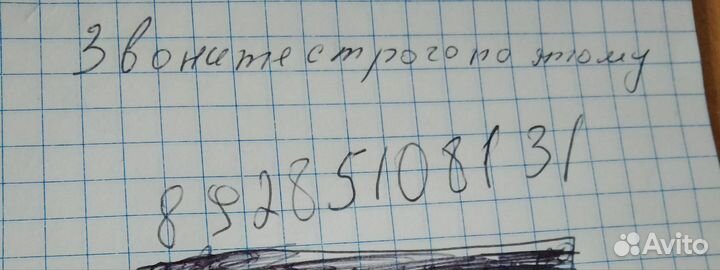 Звоните строго по этому
89285108131
Avito